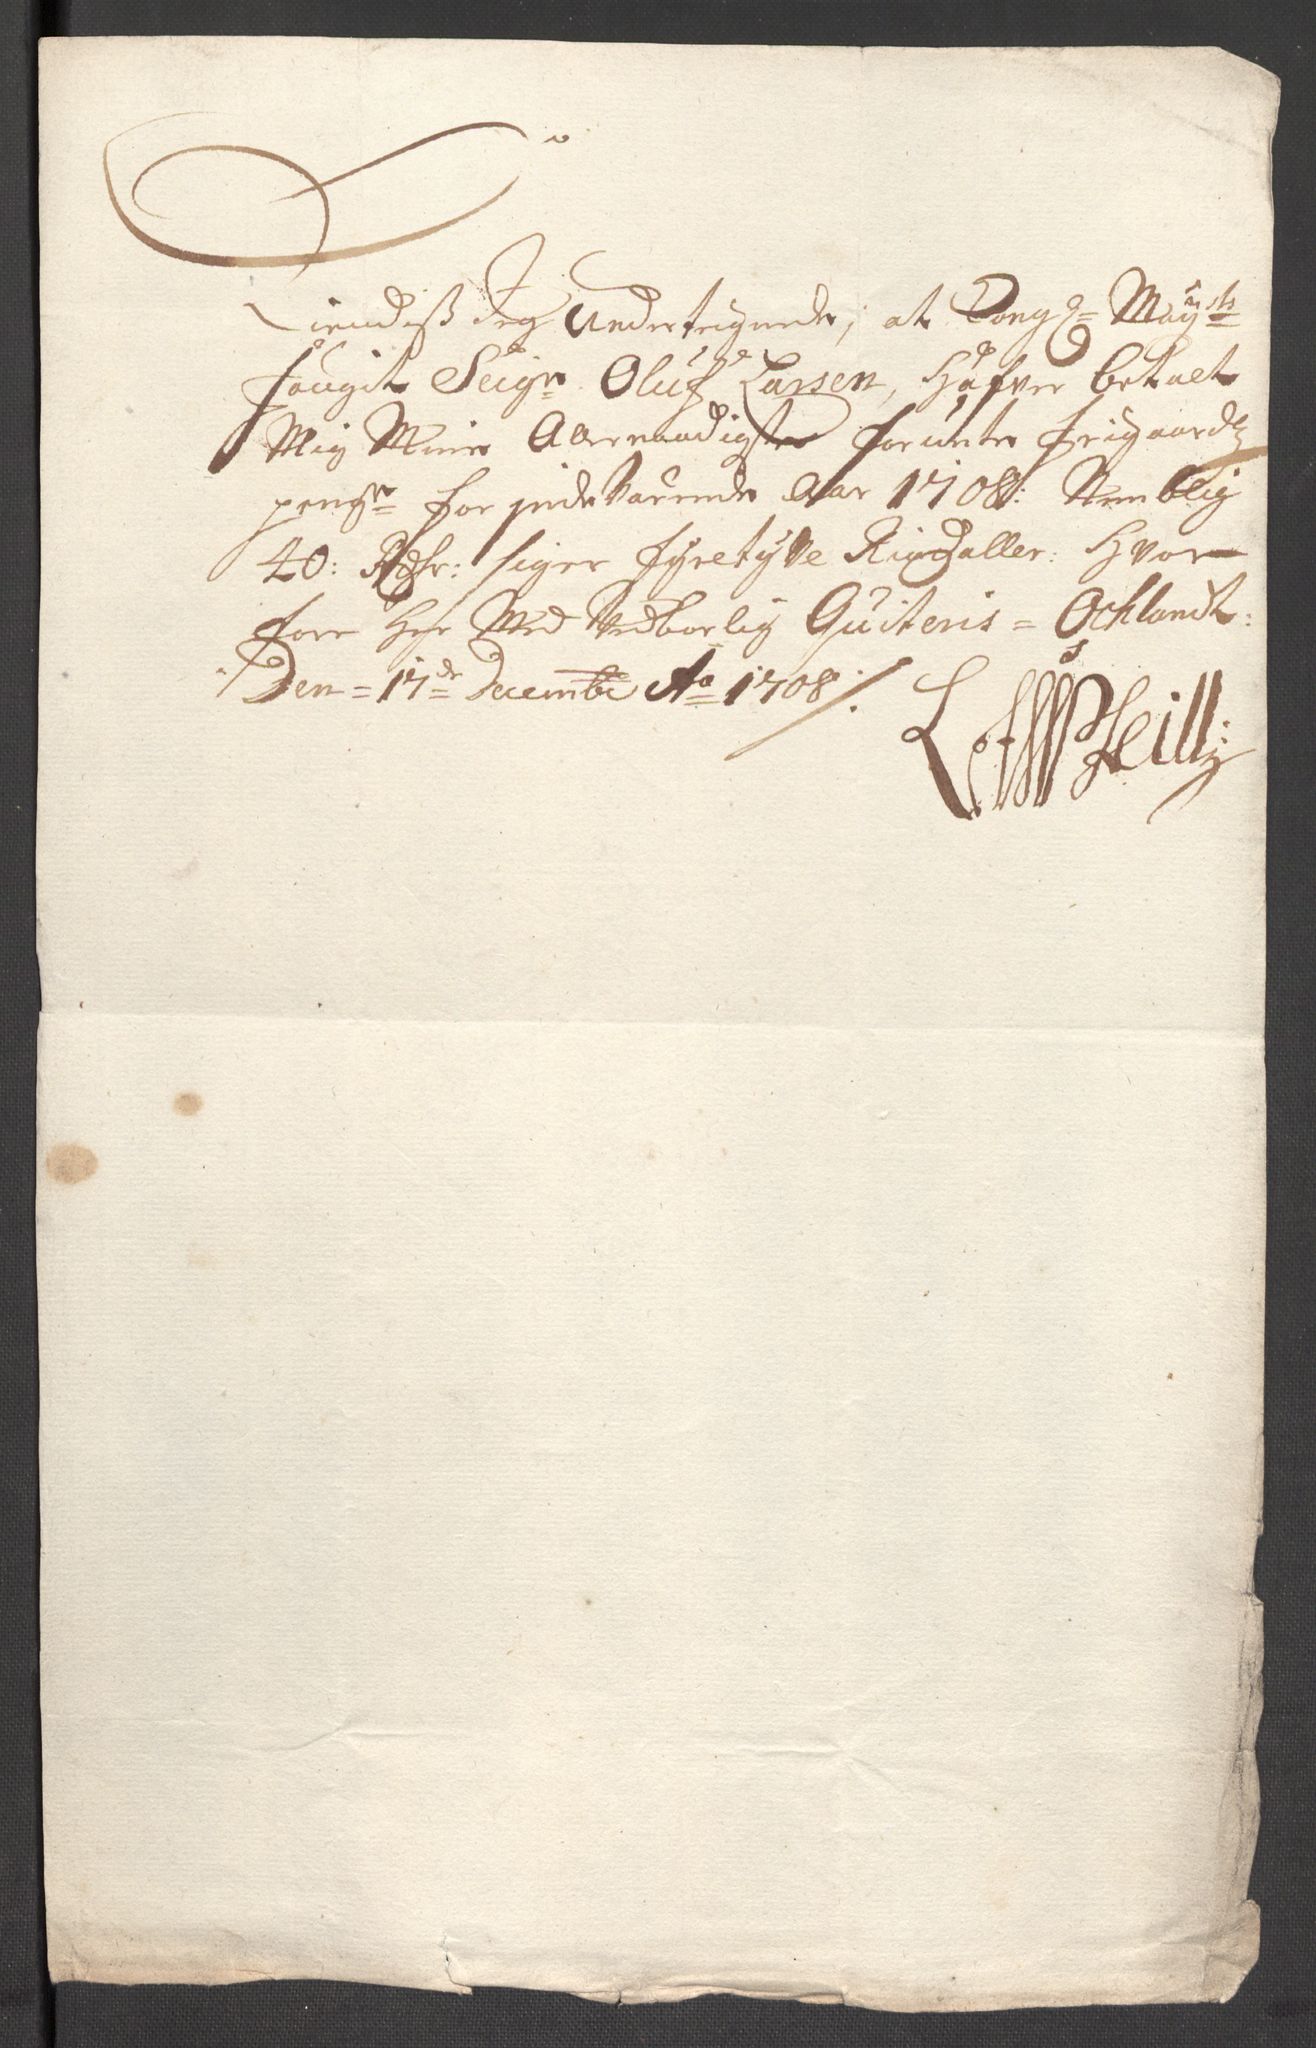 Kiendiß Jeg Underteignede, at Kongl= Mayſts
fougit Seigr. Oluf Larsen, Hafver betalt
Mig Minn Allernaadigste forunte frigaards
pengr for indeværende Aar 1708: Nemblig
40: Rdlr: siger fyretyve Rixdaller: Hvor
fore Hør Med Vedborlig Quiteris = Ochlandt:
Den = 17de Decembr Ao 1708 /: